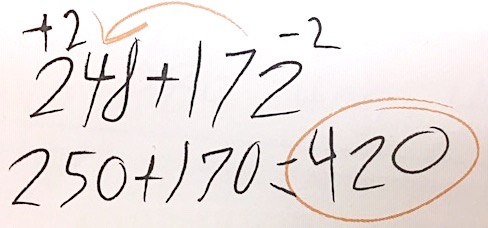 +2 -2
248+172
250+170=420